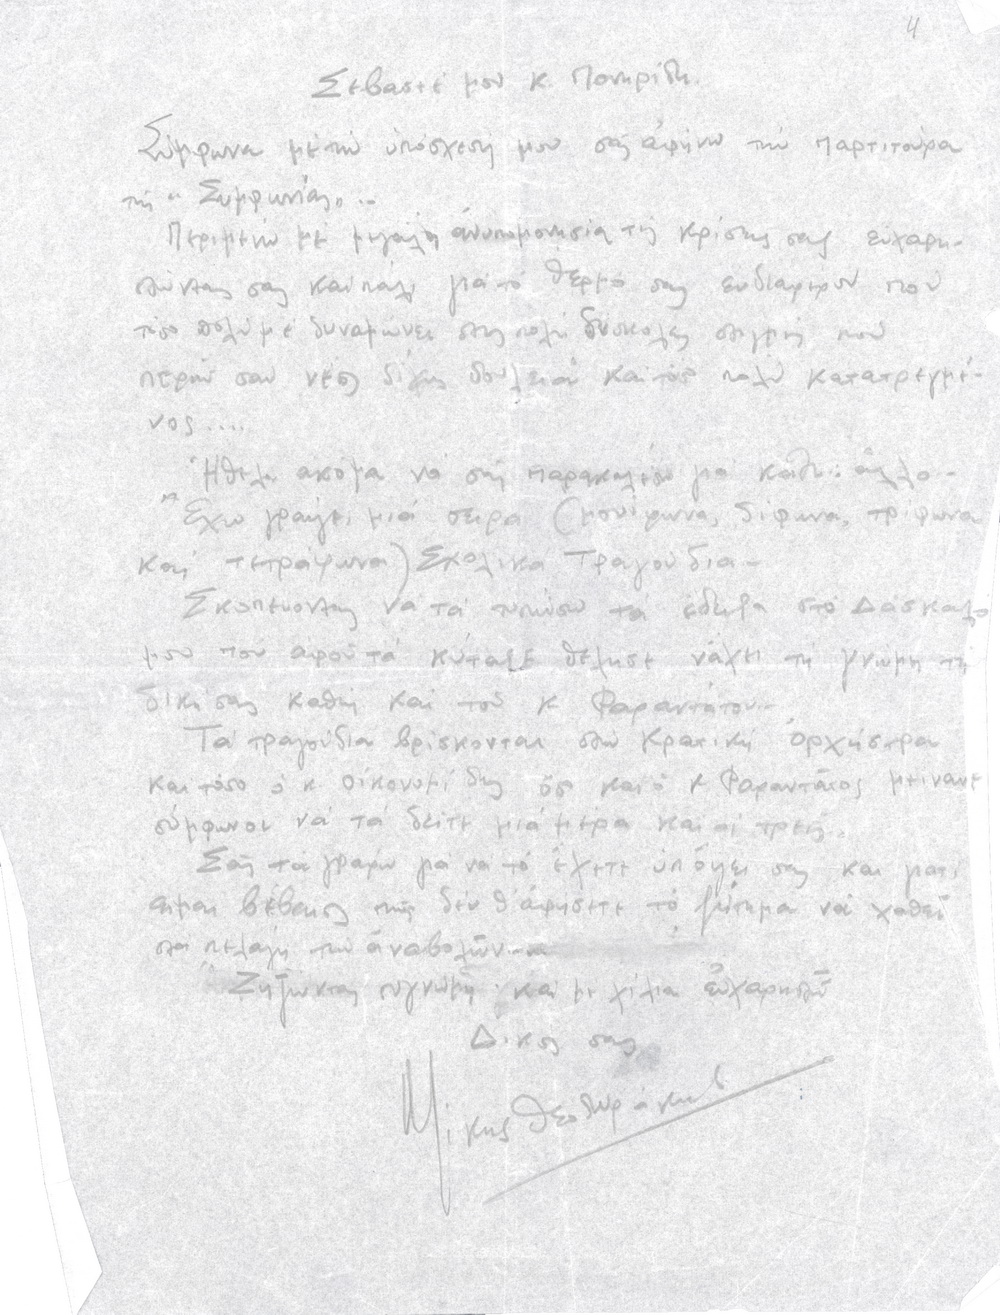 4
Σεβαστέ μου κ. Πονηρίδη.
Σύμφωνα μέ τήν ὑπόσχεσή μου σᾶς ἀφήνω τήν παρτιτούρα
τῆς "Συμφωνίας" ..
Περιμένω μέ μεγάλη ἀνυπομονησία τίς κρίσεις σας εὐχαρι-
στώντας σας καί πάλι γιά τό θερμό σας ενδιαφέρον πού
τόσο πολύ μέ δυναμώνει στίς πολύ δύσκολες στιγμές πού
περνῶ σάν νέος δίχως δουλειά καί τόσο πολύ κατατρεγμέ-
νος ....
Ἤθελα ακόμα νά σᾶς παρακαλέσω γιά κάτι ἄλλο -
Ἔχω γράψει μιά σειρά (μονόφωνα, δίφωνα, τρίφωνα
καί τετράφωνα) Σχολικά Τραγούδια -
Σκοπεύοντας νά τά τυπώσω τά ἔδειξα στό Δάσκαλο
μου πού αφοῦ τά κύταξε θέλησε νἄχει τή γνώμη τή
δική σας καθώς καί τοῦ κ Φαραντάτου -
Τά τραγούδια βρίσκονται στήν Κρατική Ὀρχήστρα
καί τόσο ὁ κ. Οἰκονομίδης ὅσο καί ὁ κ Φαραντᾶτος μείνανε
σύμφωνοι νά τά δεῖτε μιά μέρα καί οἱ τρεῖς.
Σᾶς τά γράφω γιά νά τό ἔχετε ὑπ' ὄψει σας καί γιατί
εἶμαι βέβαιος πώς δέν θ' ἀφήσετε τό ζήτημα νά χαθεῖ
στό πέλαγος τῶν ἀναβολῶν -
Ζητώντας συγνώμη καί μέ χίλια εὐχαριστῶ
Δικός σας
Μίκης Θεοδωράκης